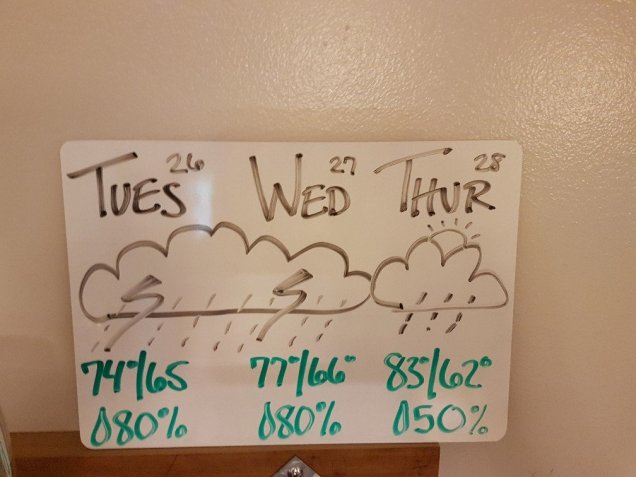 TUES 26 WED 27 THUR 28
74°/65 77°/66° 83°/62°
80% 80% 50%